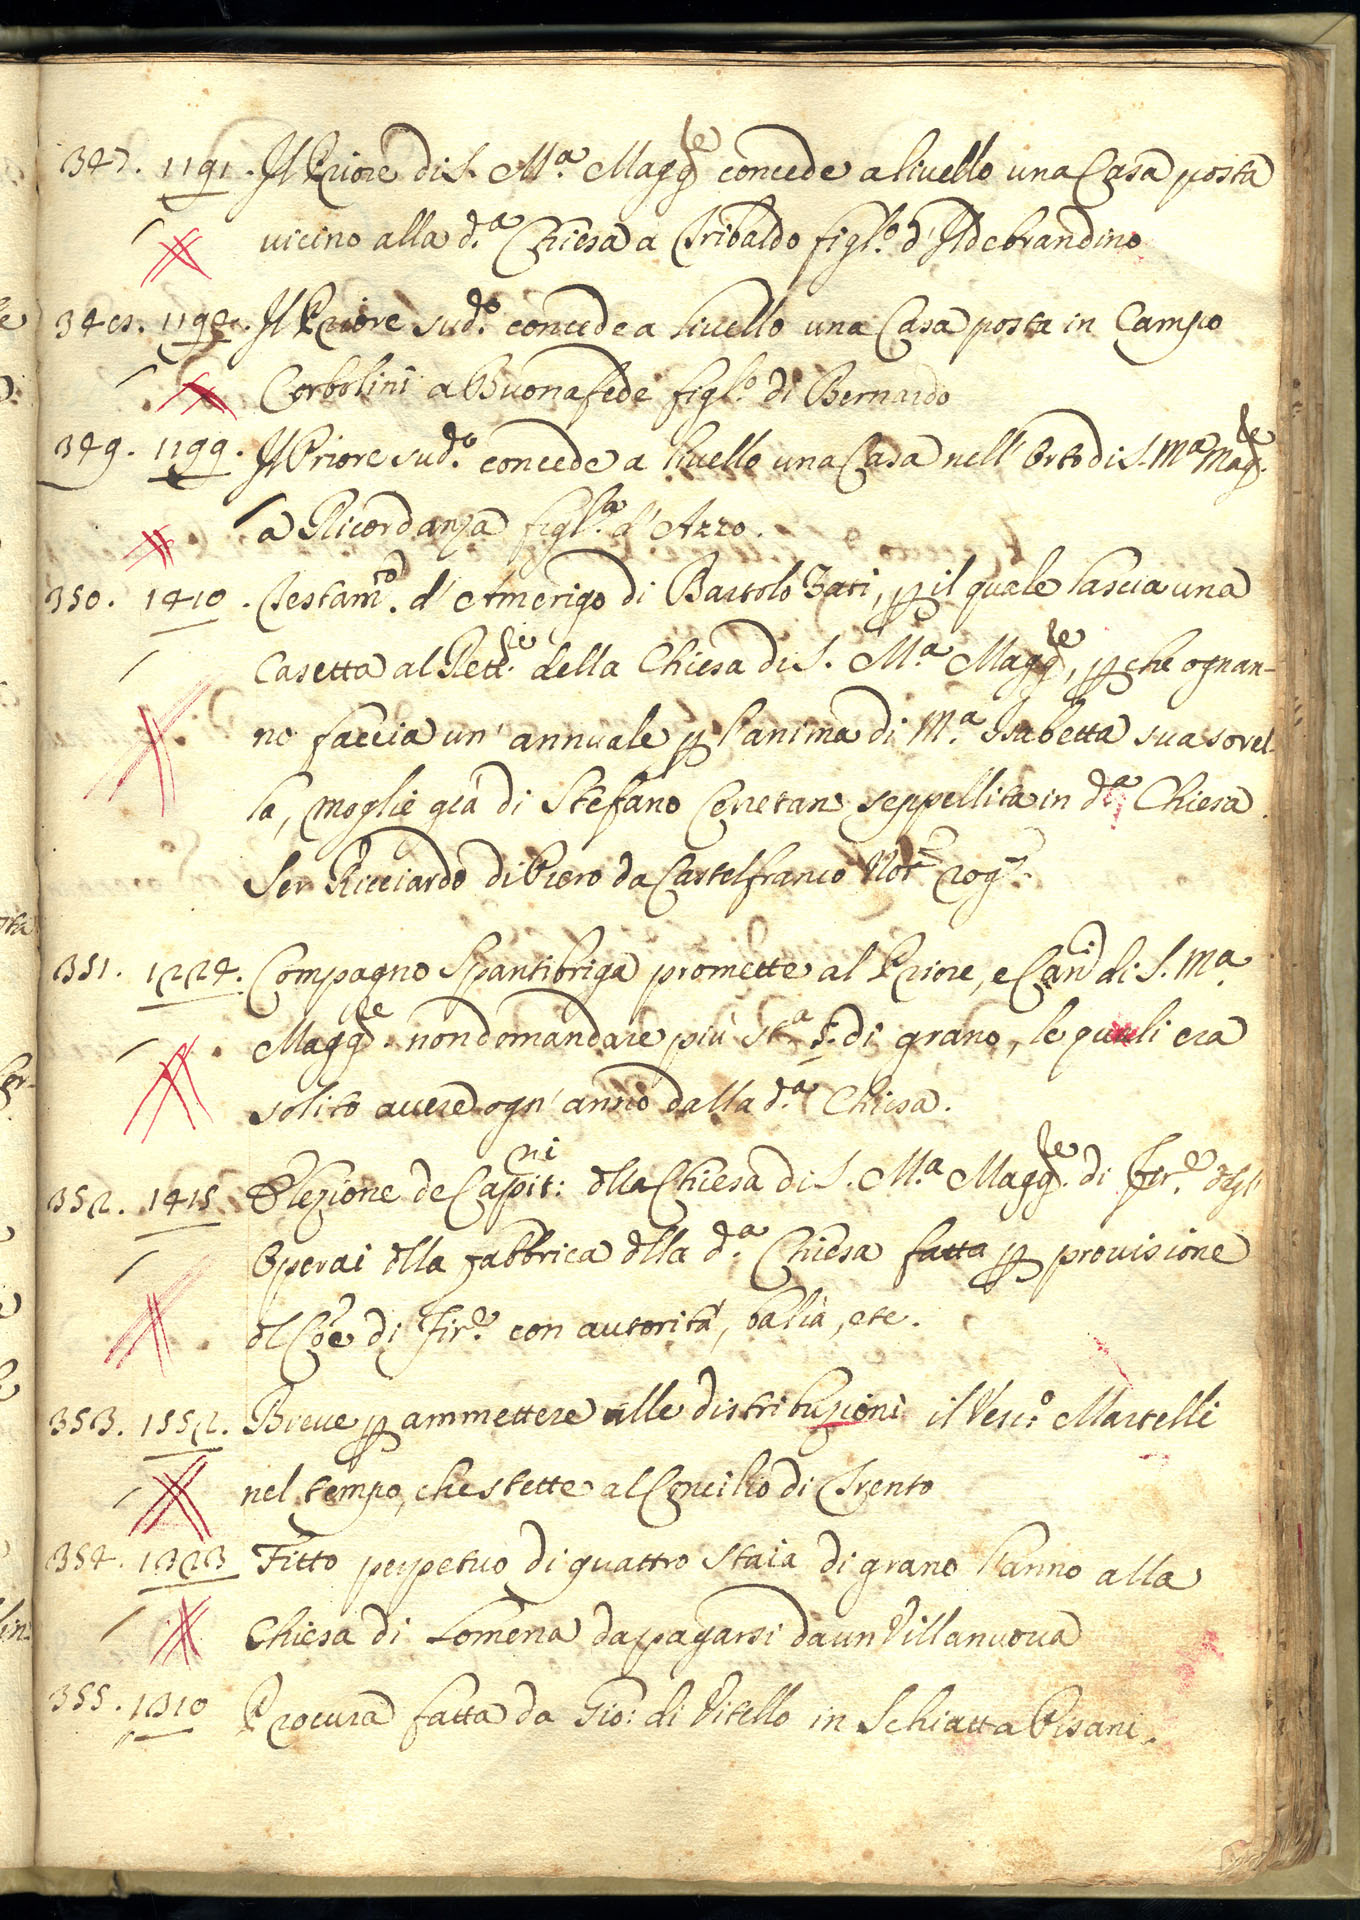 347. 1191. Il Priore di S. M.a Magg.le concede a livello una Casa posta
vicino alla d.a Chiesa a Tribaldo figl.o d'Ildebrandino
348. 1194. Il Priore sud.o concede a livello una Casa posta in Campo
Corbolini a Buonafede figl.o di Bernardo
349. 1199. Il Priore sud.o concede a livello una Casa nell'Orto di S. M.a Mag.le
a Ricordanza figl.la d'Azzo.
350. 1410. Testam.to d'Amerigo di Bartolo Zati, p il quale lascia una
Casetta al Rett.re della Chiesa di S. M.a Magg.le, p che ognan-
no faccia un'annuale p l'anima di M.a Isabetta sua sorel-
la, moglie già di Stefano seppellita in d.a Chiesa.
Ser Ricciardo di Piero da Castelfranco Not.o rog.o
351. 1224. Compagno Spantibriga promette al Priore, e Can.ci di S. M.a
Magg.le non domandare più St.a 5. di grano, le quali era
solito avere ogn'anno dalla d.a Chiesa.
352. 1415 Elezione de Capit.ni dlla Chiesa di S. M.a Magg.le di Fir.e degl'
Operai dlla fabbrica dlla d.a Chiesa fatta p provisione
dl Coe di Fir.e con autorità, balìa, etc.
353. 1552. Breve p ammettere alle distribuzioni il Vesc.o Martelli
nel tempo, che stette al Concilio di Trento
354. 1323 Fitto perpetuo di quattro staia di grano l'anno alla
Chiesa di Lomena da pagarsi da un Villanuova
355. 1310 Procura fatta da Gio: di Vitello in Schiatta Pisani.